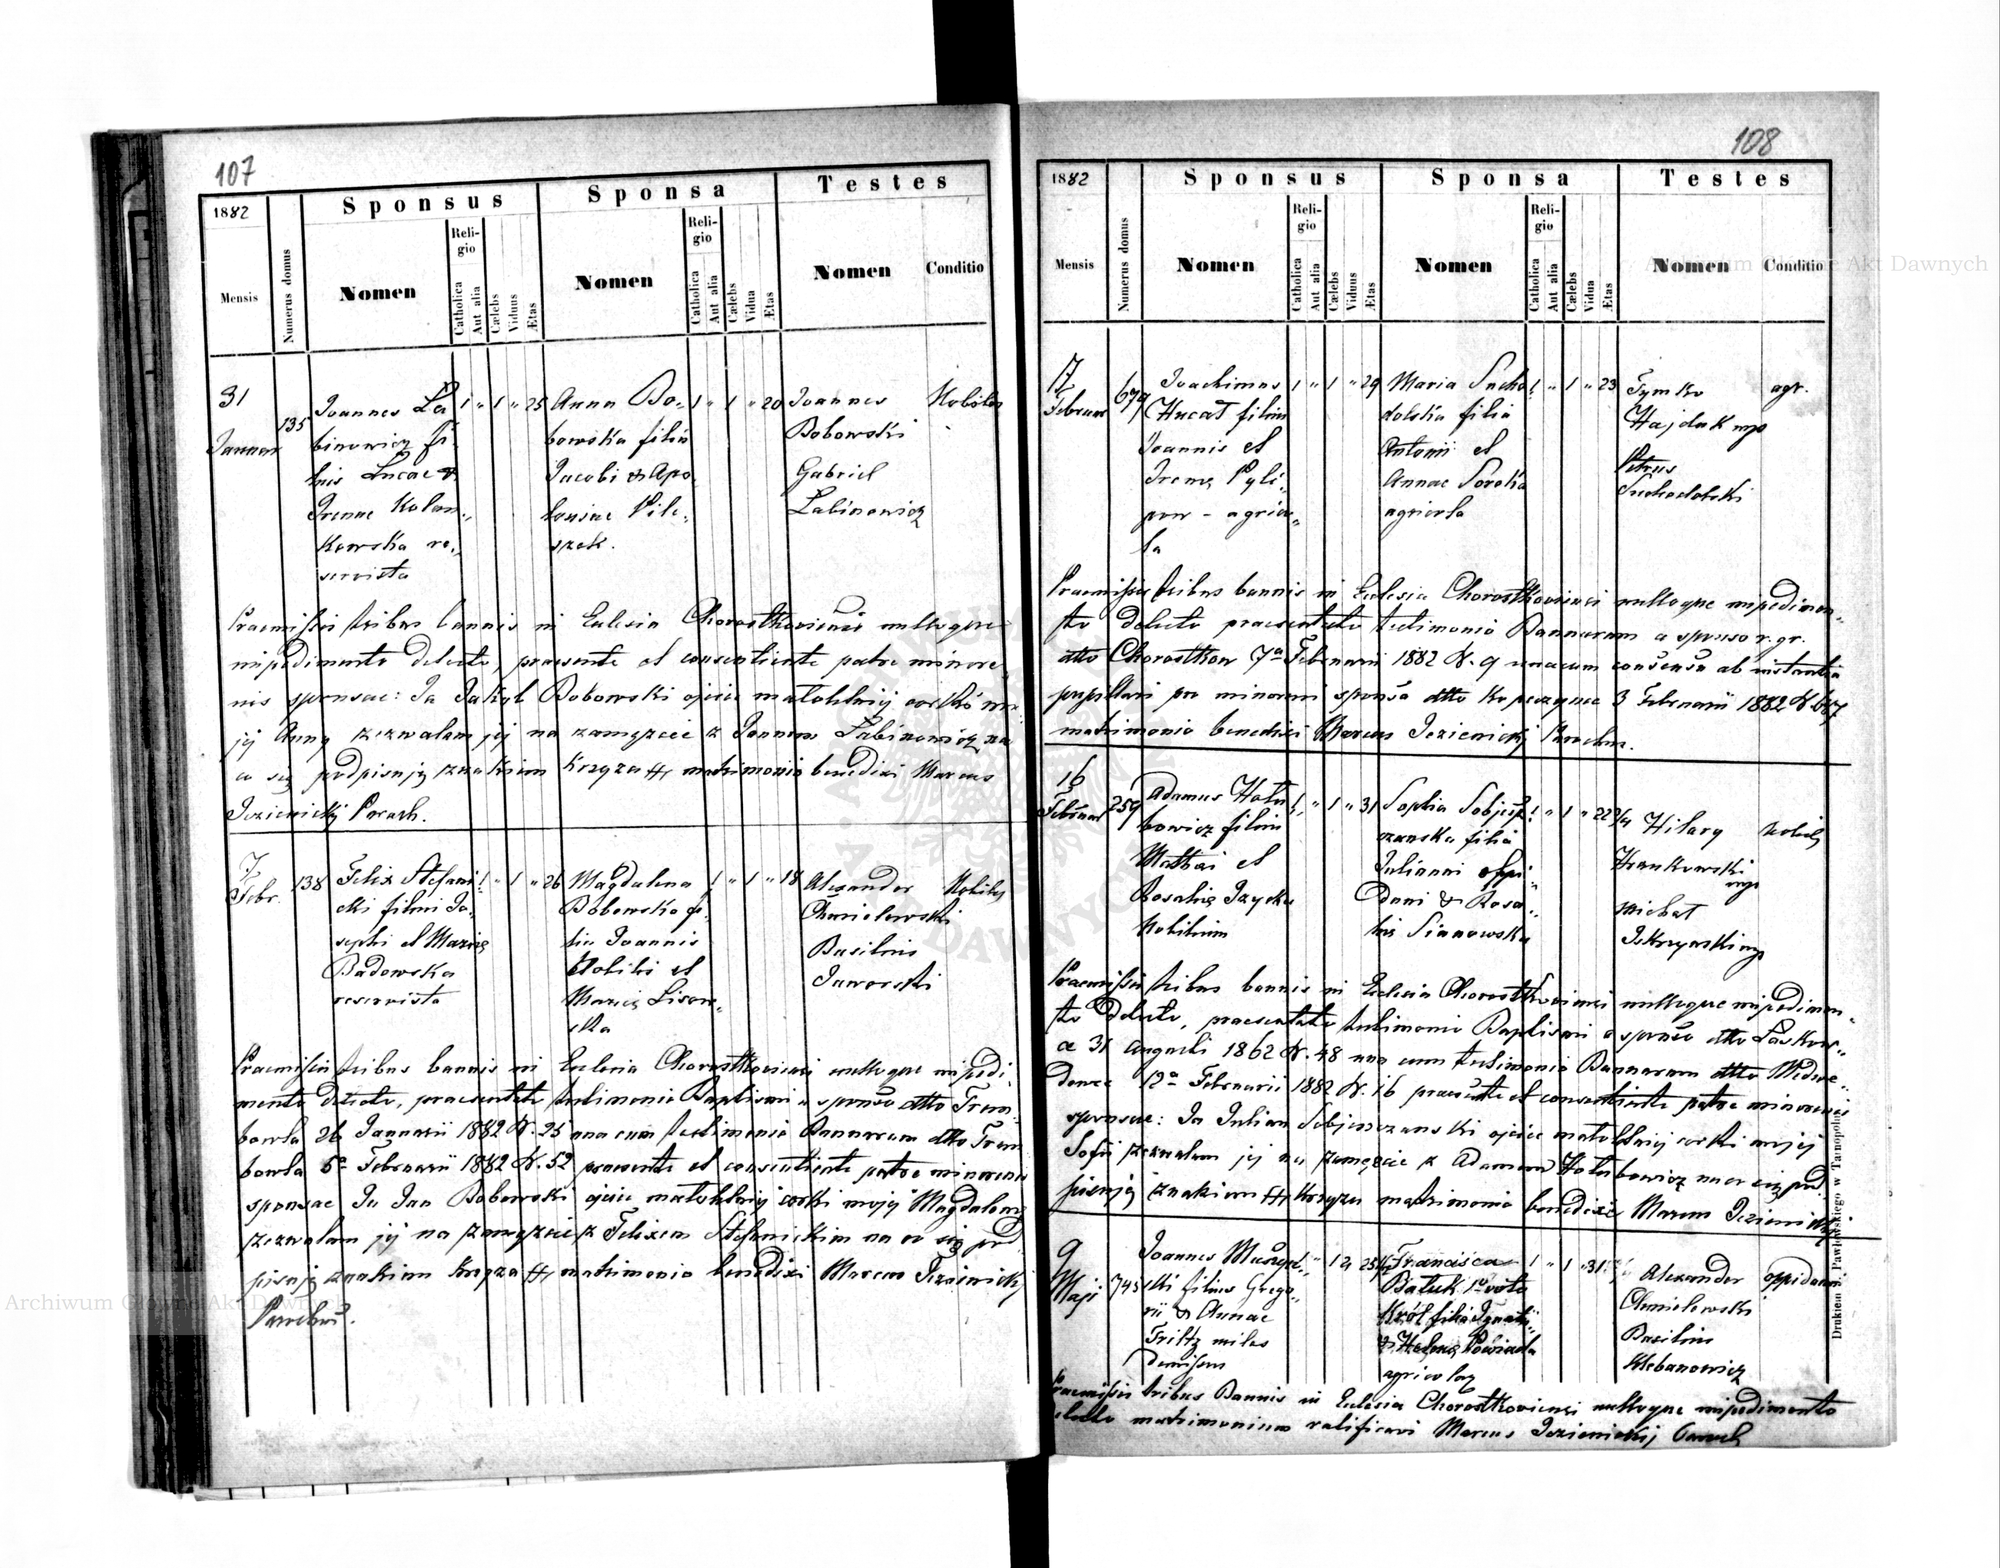 107
1882
Sponsus
Sponsa
Testes
Mensis
Numerus domus
Nomen
Religio
Catholica
Aut alia
Cælebs
Viduus
Ætas
Nomen
Religio
Catholica
Aut alia
Cælebs
Vidua
Ætas
Nomen
Conditio
31
135
Joannes La
binowicz fi
lius Lucae &
Irenae Kalan
kowska re
servista
1 " 1 " 25
Anna Bo-
bowska filia
Jacobi & Apo
loniae Pile-
szek.
1 " 1 " 20
Joannes
Bobowski
Gabriel
Labinowicz
Nobiles
Praemissis tribus bannis in Eclesia Chorostkoviensi nulloque
impedimento detecto, praesente et consentiente patre minoren
nis sponsae: Ja Jakób Bobowski ojciec małoletniej córki mo
jej Anny zezwalam jej na zamęzcie z Janem Labinowicz na
co się podpisuję znakiem krzyża matrimonio benedixi Marcus
Jezienicki Paroch.
7
Febr.
138
Felix Stefani
cki filius Jo
sephi et Mariæ
Badowska
reservista
1 " 1 " 26
Magdalena
Bobowska fi
lia Joannis
Nobilis et
Mariæ Lisow
ska
1 " 1 " 18
Alexander
Chmielowski
Basilius
Jaworski
Nobiles
Praemissis tribus bannis in Eclesia Chorostkoviensi nulloque impedi
mento detecto, praesentato testimonio Baptismi a sponso dtto Trem
bowla 26 Januarii 1882 N. 25 una cum testimonio Bannorum dtto Trem
bowla 5a Februarii 1882 N. 52 praesente et consentiente patre minorenis
sponsae Ja Jan Bobowski ojciec małoletniej córki mojej Magdaleny
zezwalam jej na zamęzcie z Felixem Stefanickim na co się pod
pisuję znakiem krzyża matrimonio benedixi Marcus Jezienicki
Parochus.
108
1882
Sponsus
Sponsa
Testes
Mensis
Numerus domus
Nomen
Religio
Catholica
Aut alia
Cælebs
Viduus
Ætas
Nomen
Religio
Catholica
Aut alia
Cælebs
Vidua
Ætas
Nomen
Conditio
Joachimus
Hucał filius
Joannis et
Irenę Pyli
pow - agrico
la
1 " 1 " 29
Maria Sucho
dolska filia
Antonii et
Annae Soroka
agricola
1 " 1 " 23
Tymko
Hajdak mp
Petrus
Suchodolski
agr.
Praemissis tribus bannis in Eclesia Chorostkoviensi nulloque impedimen
to detecto praesentato testimonio Bannorum a sponso r. gr.
dtto Chorostkow 7a Februarii 1882 N. 9 unacum consensu ab instantia
pupillari pro minorenni sponsa dtto Kopeczynce 3 Februarii 1882 N 647
matrimonio benedixi Marcus Jezienicki Parochus.
16
259
Adamus Hołu
bowicz filius
Mathæi et
Rosaliæ
Nobilium
1 " 1 " 31
Sophia Sobjesz
czanska filia
Julianni oppi
dani & Rosa
liæ Sianowska
1 " 1 " 22
Hilary
Hrankowski
mp
Michał
mp
nobiles
Praemissis tribus bannis in Eclesia Chorostkoviensi nulloque impedimen
to detecto, praesentato testimonio Baptismi a sponso dtto Laskow
ce 31 Augusti 1862 N. 48 una cum testimonio Bannorum dtto Medwe
dowce 12a Februarii 1882 N. 16 praesente et consentiente patre minorenis
sponsae: Ja Julian Sobjeszczanski ojciec małoletniej córki mojej
Sofii zezwalam jej na zamęzcie z Adamem Hołubowicz na co się pod
pisuję znakiem krzyża matrimonio benedixi Marcus Jezienicki
9
Maji
745
Joannes
cki filius Grego
rii & Annae
Fritz miles
Francisca
Bałuk 1o voto
Król filia Ignatii
& Helenę
agricolæ
Alexander
Chmielowski
Basilius
Klebanowicz
oppidani
Praemissis tribus Bannis in Eclesia Chorostkoviensi nulloque impedimento
detecto matrimonium ratificavi Marcus Jezienickij Paroch
Drukiem J. Pawłowskiego w Tarnopolu
Archiwum Główne Akt Dawnych
Archiwum Główne Akt Dawnych